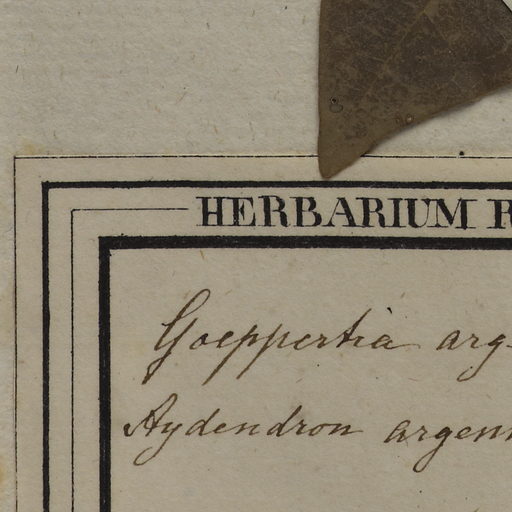 HERBARIUM R
Goeppertia arg
Aydendron argen